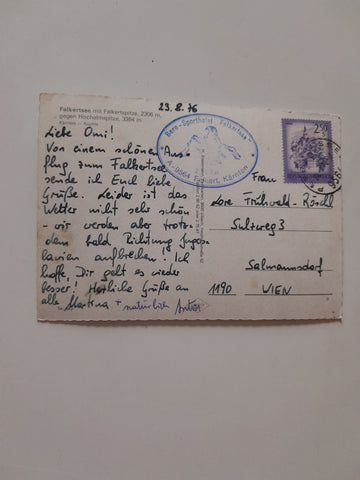 23.8.76
Falkertsee mit Falkertspitze, 2308 m,
gegen Hochalmspitze, 3364 m
Kärnten – Austria
Liebe Omi!
Von einem schönen Aus-
flug zum Falkertsee
sende ich Euch liebe
Grüße. Leider ist das
Wetter nicht sehr schön
- wir werden aber trotz-
dem bald Richtung Jugos-
lavien aufbrechen! Ich
hoffe Dir geht es wieder
besser! Herzliche Grüße an
alle Martina + natürlich
Sporthotel Falkertsee
A-9564 Falkert, Kärnten
2.50
Frau
Lore Frühwald-Röschl
Sulzweg 3
Salmannsdorf
1190 WIEN